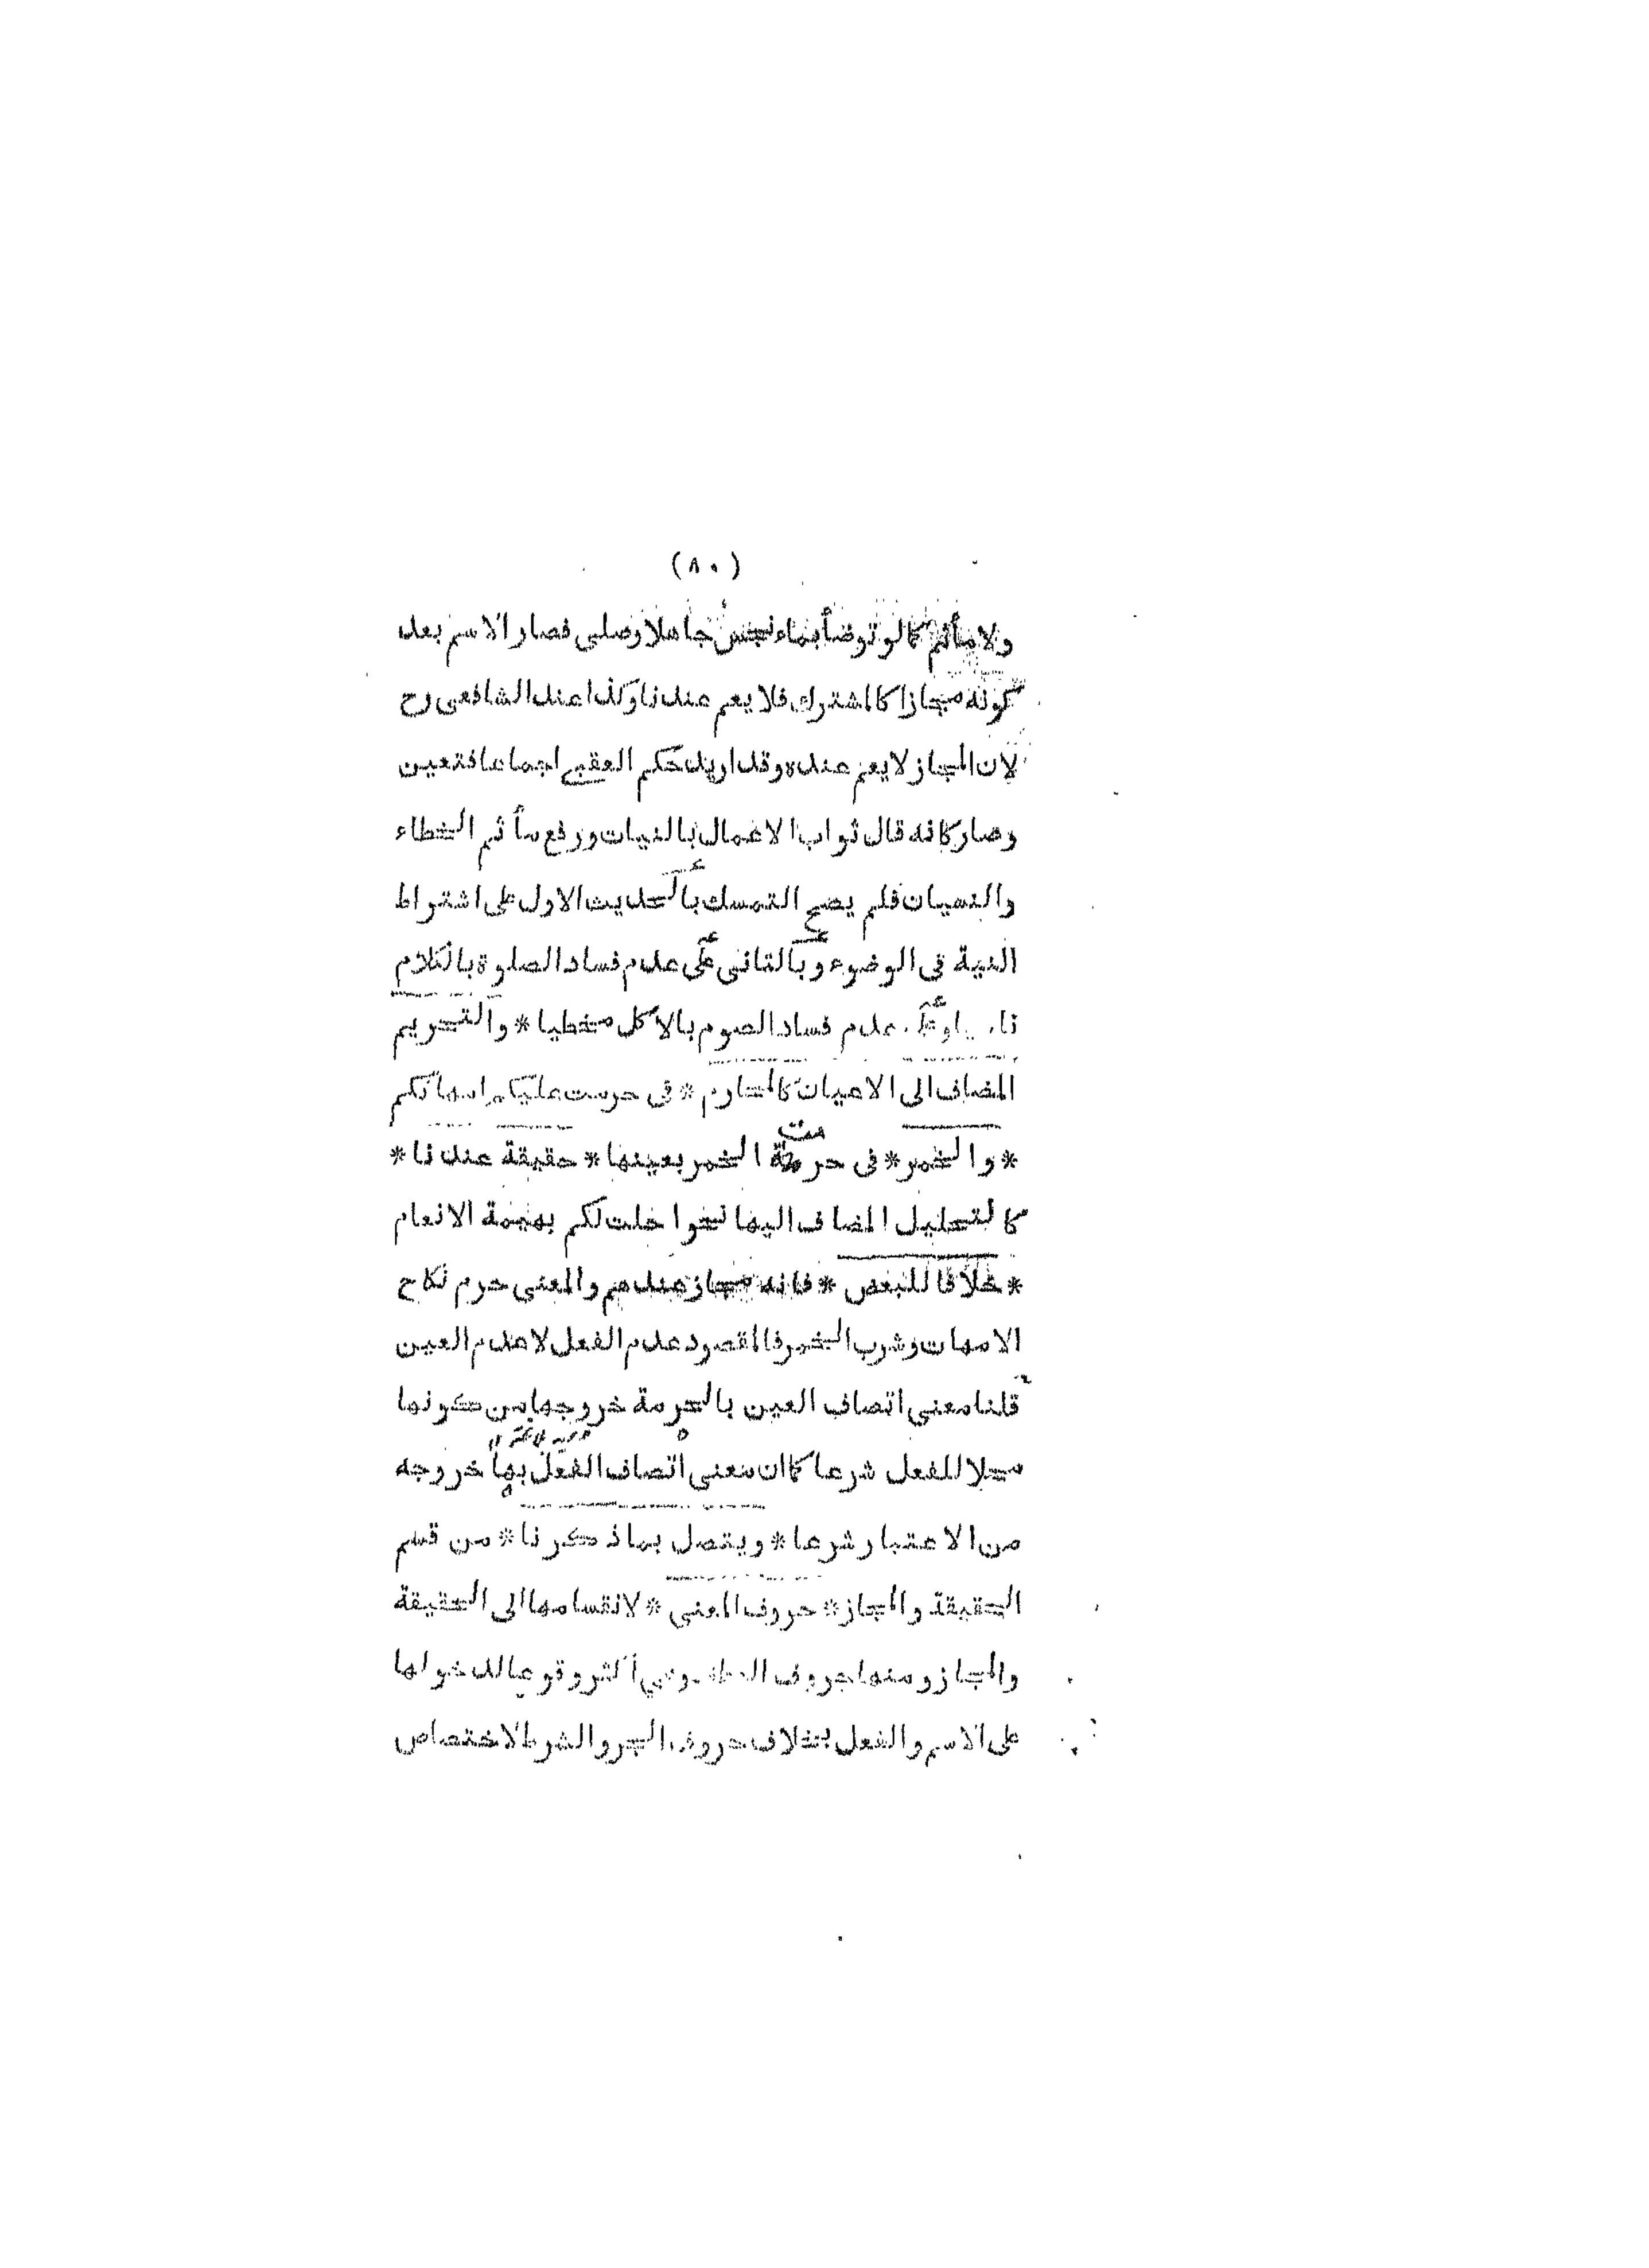 (٨٠)
ولا مأثم كما لو توضأ بماء نجس جاهلا وصلى فصار الاسم بعد
كونه مجازا كالمشترك فلا يعم عندنا وكذا عند الشافعى رح
لان المجاز لا يعم عنده وقد اريد حكم العقبى اجماعا فتعين
وصار كانه قال ثواب الاعمال بالنيات ورفع مأثم الخطاء
والنسيان فلم يصح التمسك بالحديث الاول على اشتراط
النية فى الوضوء وبالثانى على عدم فساد الصلوة بالكلام
وعلى عدم فساد الصوم بالاكل مخطيا * والتحريم
المضاف الى الاعيان كالمحارم * فى حرمت عليكم امهاتكم
* والخمر * فى حرمت الخمر بعينها * حقيقة عندنا *
كالتحليل المضاف اليها نحو احلت لكم بهيمة الانعام
* خلافا للبعض * فانه مجاز عندهم والمعنى حرم نكاح
الامهات وشرب الخمر فالمقصود عدم الفعل لا عدم العين
قلنا معنى اتصاف العين بالحرمة خروجها من كونها
محلا للفعل شرعا كما ان معنى اتصاف الفعل بها خروجه
من الاعتبار شرعا * ويتصل بما ذكرنا * من قسم
الحقيقة والمجاز * حروف المعنى * لانقسامها الى الحقيقة
والمجاز ومنها حروف العطف وهى اكثر وقوعا لدخولها
على الاسم والفعل بخلاف حروف الجر والشرط لاختصاص